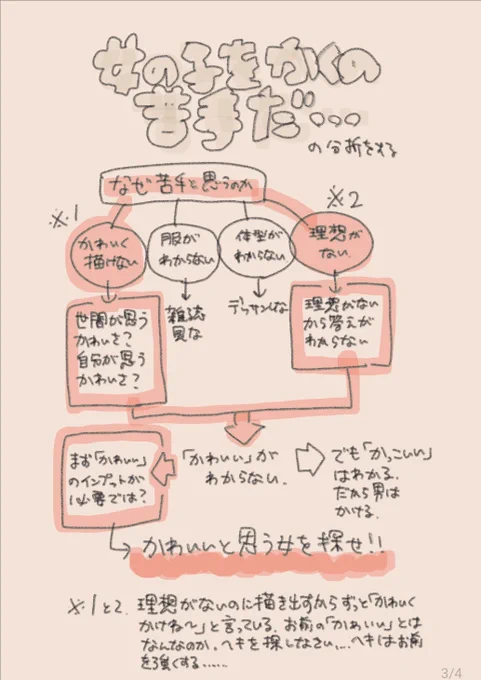 女の子をかくの
苦手だ…
の分析をする
なぜ苦手と思うのか
※1
※2
かわいく
描けない
服が
わからない
体型が
わからない
理想が
ない
世間が思う
かわいさ?
自分が思う
かわいさ?
雑誌
見な
デッサンしな
理想がない
から答えが
わからない
まず「かわいい」
のインプットが
必要では?
「かわいい」が
わからない.
でも「かっこいい」
はわかる.
だから男は
かける.
かわいいと思う女を探せ!!
※1と2. 理想がないのに描き出すからずっと「かわいく
かけね〜」と言っている.お前の「かわいい」とは
なんなのか.ヘキを探しなさい….ヘキはお前
を強くする……
3/4